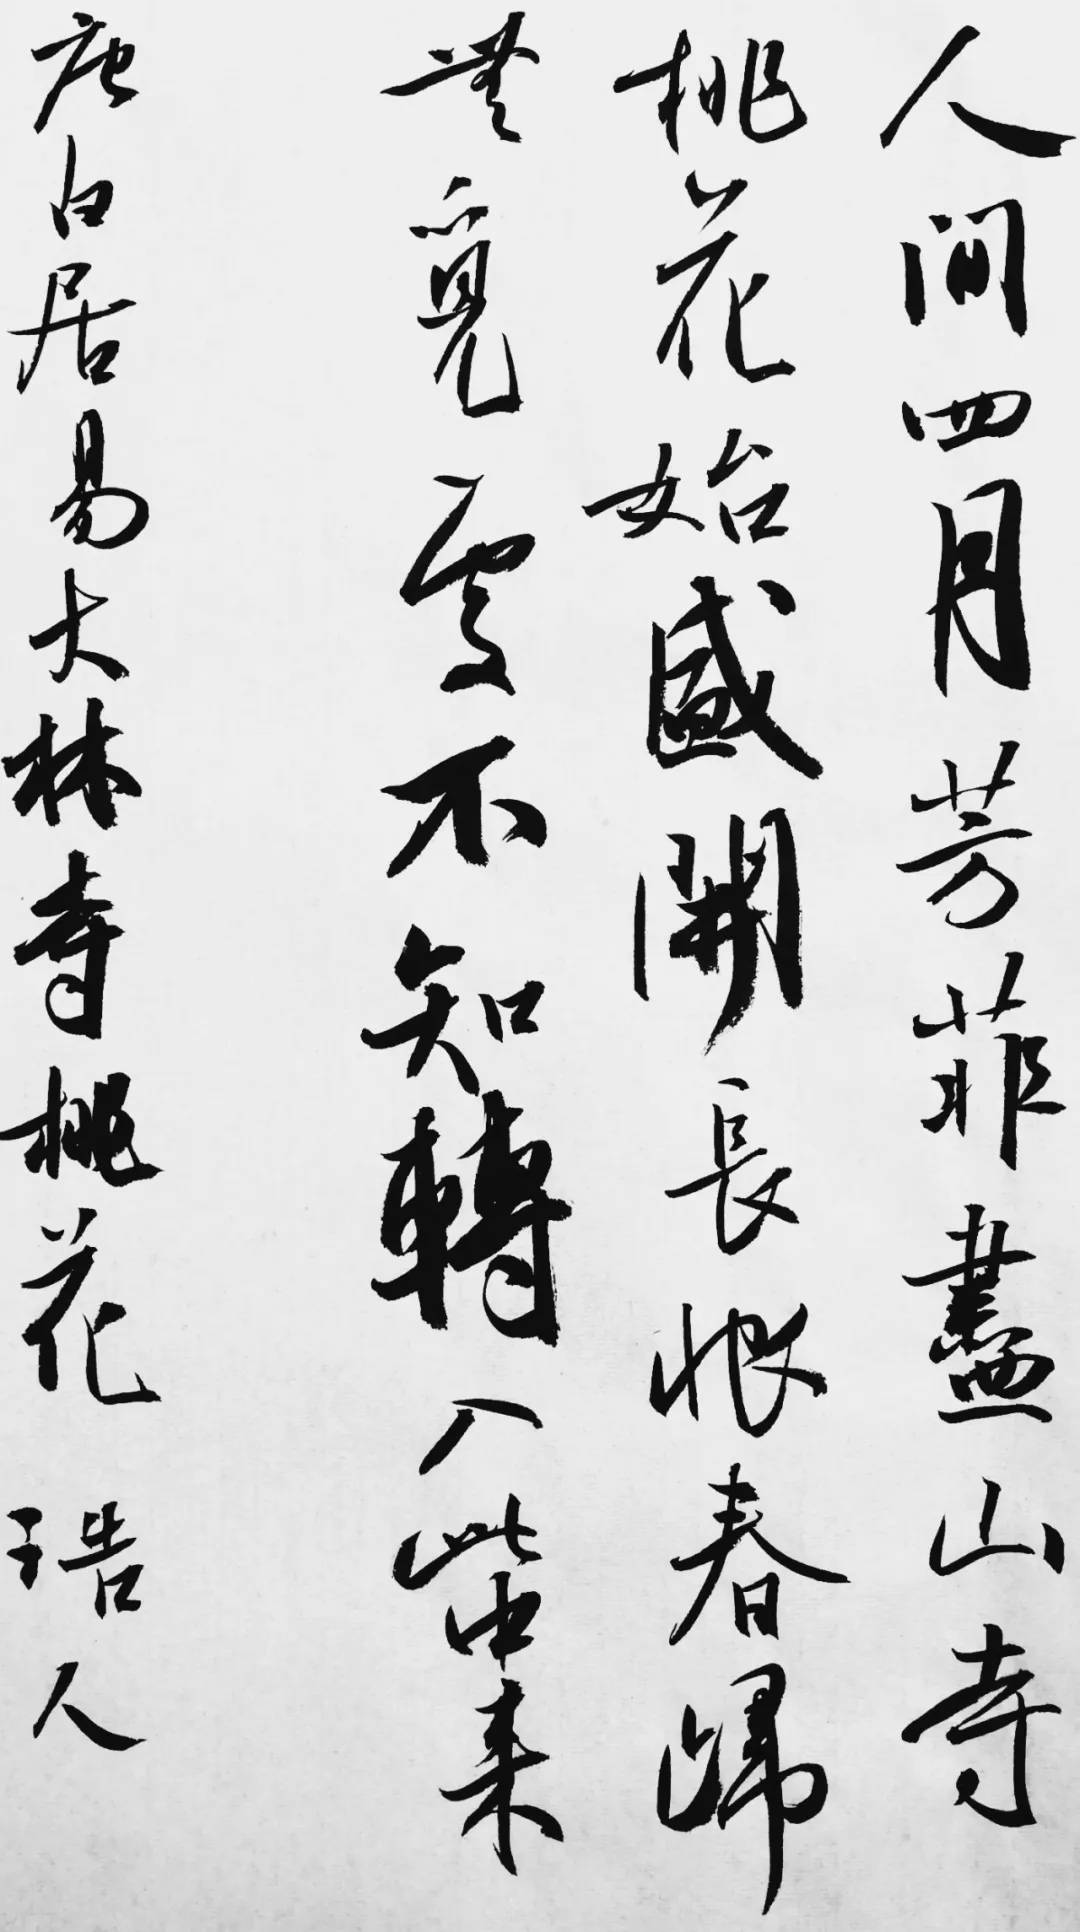 人间四月芳菲盡山寺
桃花始盛開長恨春歸
無覓處不知轉入此中来
唐白居易大林寺桃花 珸人